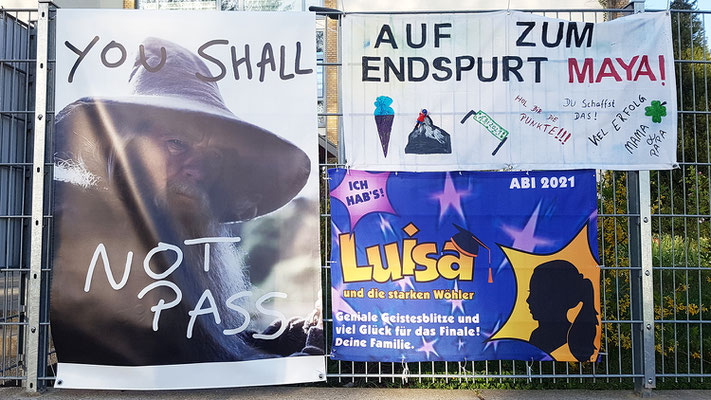 YOU SHALL
NOT
PASS
AUF ZUM
ENDSPURT MAYA!
HOL DIR DIE
PUNKTE!!!
DU SCHAFFST
DAS!
VIEL ERFOLG
MAMA
&
PAPA
ICH
HAB'S!
ABI 2021
Luisa
und die starken Wöhler
Geniale Geistesblitze und
viel Glück für das Finale!
Deine Familie.